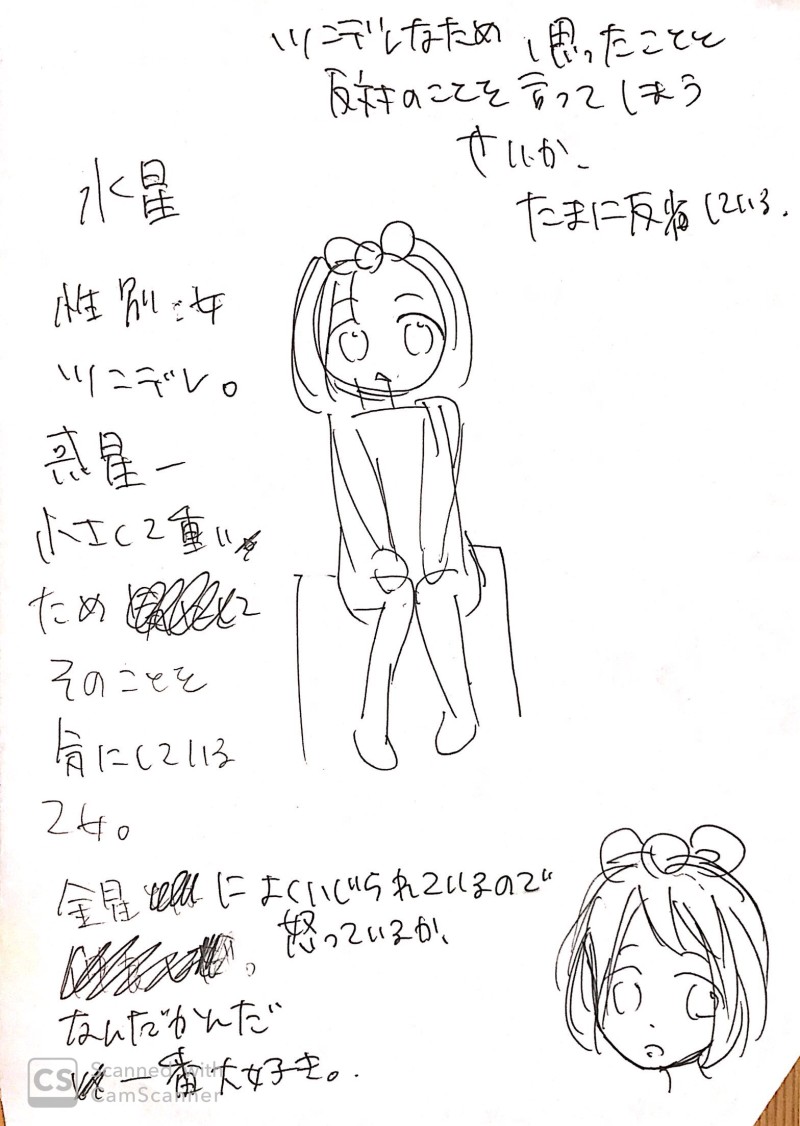 ツンデレなため 思ったことと
反対のことを言ってしまう
せいか、
たまに反省している。
水星
性別:女
ツンデレ。
惑星一
小さくて重い
ため
そのことを
気にしている
乙女。
金星 によくいじられているので
怒っているが、
なんだかんだ
一番大好き。
CS Scanned with
CamScanner